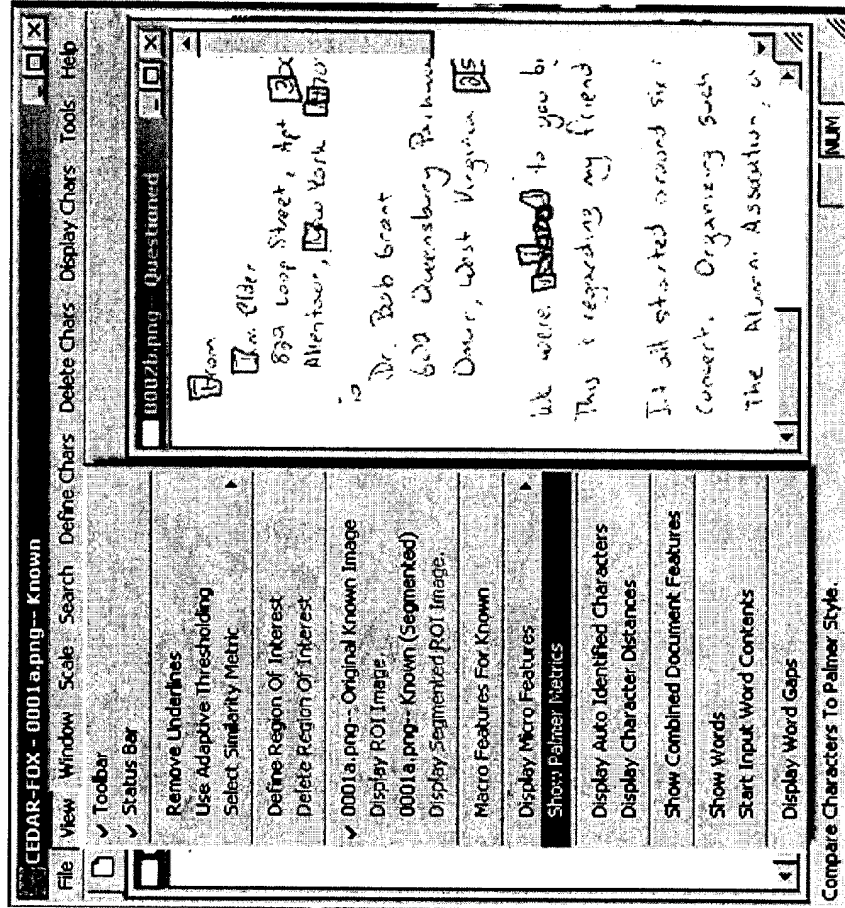 CEDAR-FOX - 0001a.png-- Known
File View Window Scale Search Define Chars Delete Chars Display Chars Tools Help
✓ Toolbar
✓ Status Bar
Remove Underlines
Use Adaptive Thresholding
Select Similarity Metric
Define Region Of Interest
Delete Region Of Interest
✓ 0001a.png-- Original Known Image
Display ROI Image.
0001a.png-- Known (Segmented)
Display Segmented ROI Image.
Macro Features For Known
Display Micro Features
Show Palmer Metrics
Display Auto Identified Characters
Display Character Distances
Show Combined Document Features
Show Words
Start Input Word Contents
Display Word Gaps
0002b.png-- Questioned
From
Jim Elder
829 Loop Street, Apt
Allentown, New York
To
Dr. Bob Grant
602 Queensbury
Omar, West Virginia 25
We were to you b
This is regarding my friend
It all started around six
Concert. Organizing such
The Alumni Association,
Compare Characters To Palmer Style.
NUM